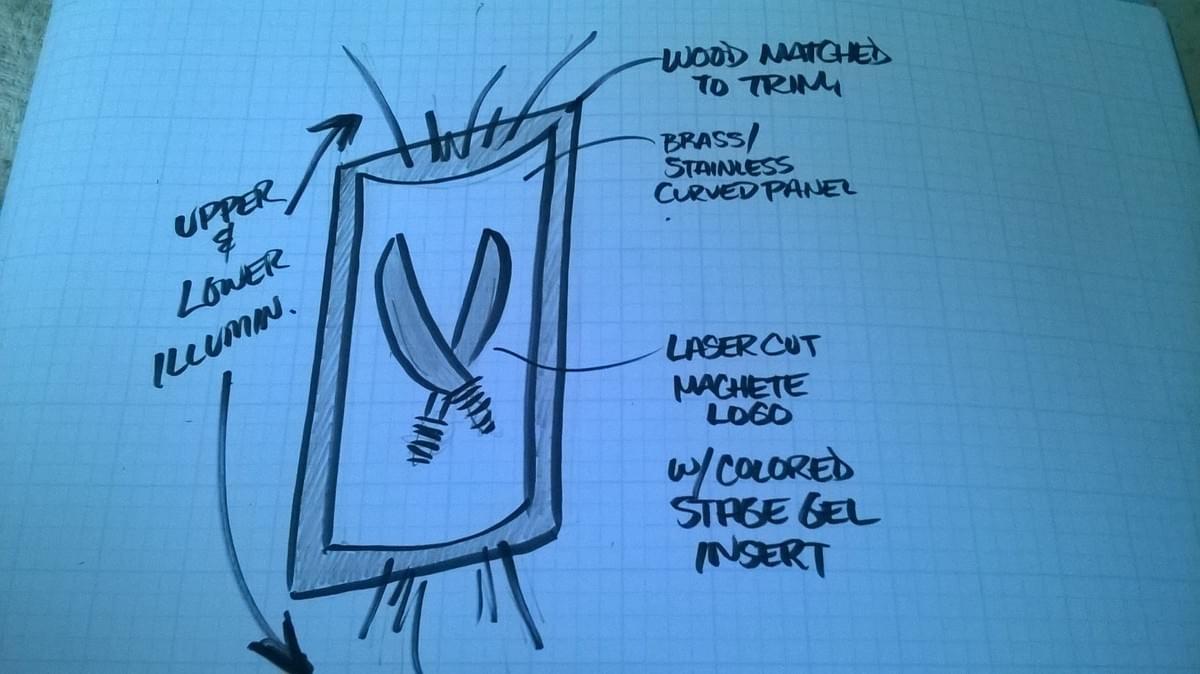 WOOD MATCHED
TO TRIM
BRASS/
STAINLESS
CURVED PANEL
UPPER
&
LOWER
ILLUMIN.
LASER CUT
MACHETE
LOGO
W/ COLORED
STAGE GEL
INSERT